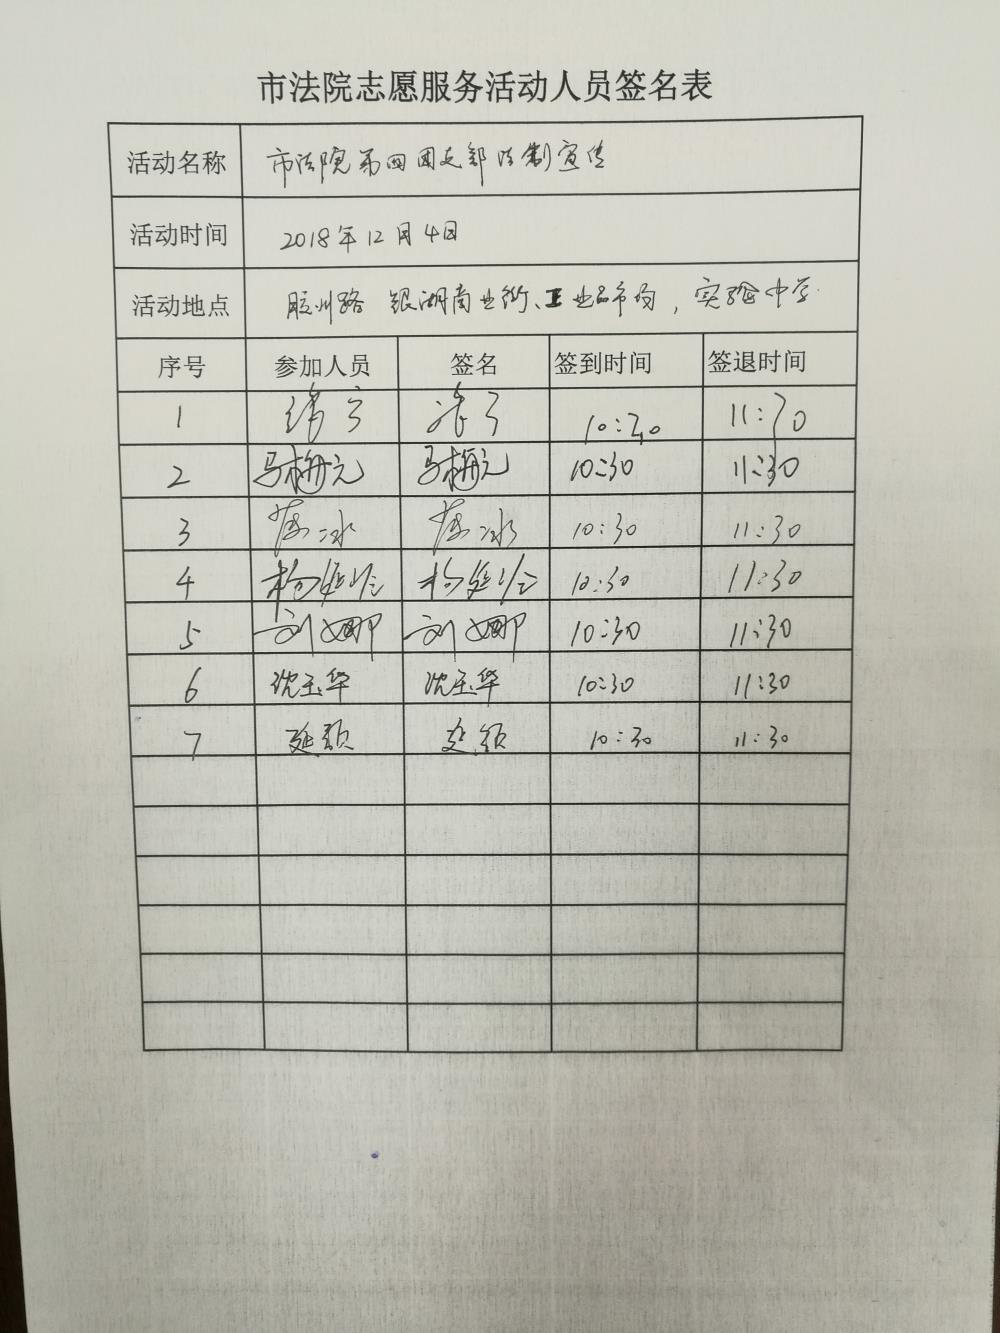 市法院志愿服务活动人员签名表
活动名称 市法院第四团支部法制宣传
活动时间 2018年12月4日
活动地点 胶州路 银湖商业街、工业品市场,实验中学
序号 参加人员 签名 签到时间 签退时间
1
2 马梅元 马梅元 10:30 11:30
3 10:30 11:30
4 10:30 11:30
5 刘娜 刘娜 10:30 11:30
6 沈玉华 沈玉华 10:30 11:30
7 10:30 11:30